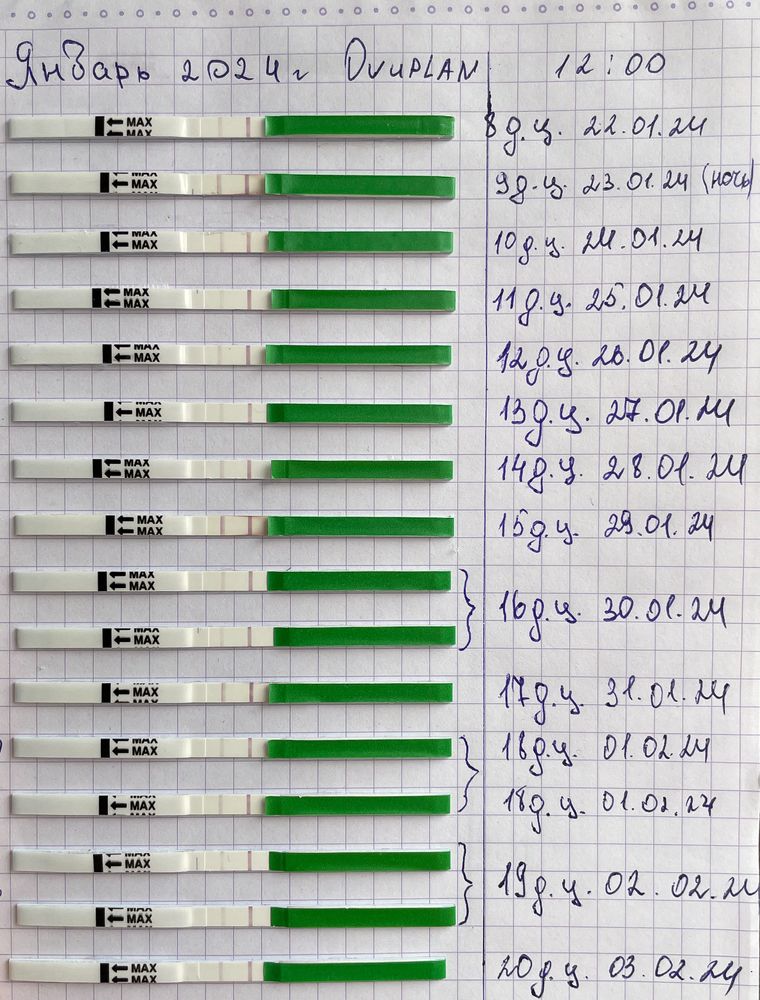 Январь 2024г OVUPLAN 12:00
MAX MAX 8 д.ц. 22.01.24
MAX MAX 9 д.ц. 23.01.24 (ночь)
MAX MAX 10 д.ц. 24.01.24
MAX MAX 11 д.ц. 25.01.24
MAX MAX 12 д.ц. 26.01.24
MAX 13 д.ц. 27.01.24
MAX MAX 14 д.ц. 28.01.24
MAX MAX 15 д.ц. 29.01.24
MAX MAX
16 д.ц. 30.01.24
MAX MAX
MAX 17 д.ц. 31.01.24
MAX MAX 18 д.ц. 01.02.24
MAX 18 д.ц. 01.02.24
MAX
19 д.ц. 02.02.24
MAX MAX
MAX MAX 20 д.ц. 03.02.24